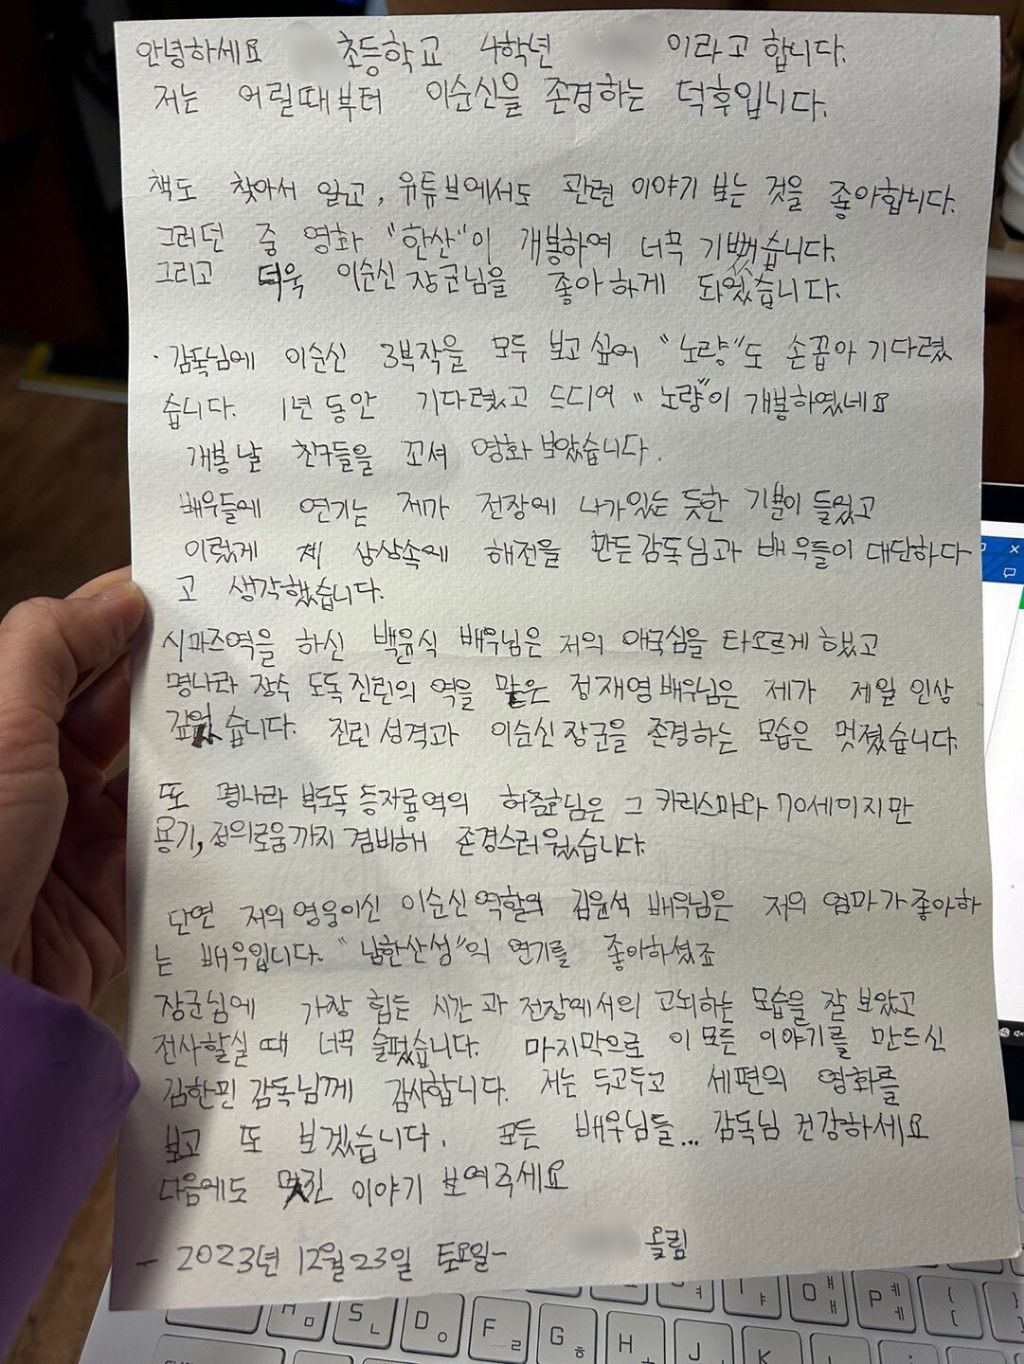 안녕하세요 초등학교 4학년 이라고 합니다.
저는 어릴때부터 이순신을 존경하는 덕후입니다.
책도 찾아서 읽고, 유튜브에서도 관련 이야기 보는 것을 좋아합니다.
그러던 중 영화 "한산"이 개봉하여 너무 기뻤습니다.
그리고 더욱 이순신 장군님을 좋아하게 되었습니다.
· 감독님에 이순신 3부작을 모두 보고 싶어 "노량"도 손꼽아 기다렸
습니다. 1년 동안 기다렸고 드디어 "노량"이 개봉하였네요
개봉날 친구들을 꼬셔 영화 보았습니다.
배우들에 연기는 제가 전장에 나가있는 듯한 기분이 들었고
이렇게 제 상상속에 해전을 만든 감독님과 배우들이 대단하다
고 생각했습니다.
시마즈역을 하신 백윤식 배우님은 저의 애국심을 타오르게 했고
명나라 장수 도독 진린의 역을 맡은 정재영 배우님은 제가 제일 인상
깊었습니다. 진린 성격과 이순신 장군을 존경하는 모습은 멋졌습니다.
또 명나라 부도독 등자룡역의 허준호님은 그 카리스마와 70세이지만
용기, 정의로움까지 겸비해 존경스러웠습니다.
단연 저의 영웅이신 이순신 역할의 김윤석 배우님은 저의 엄마가 좋아하
는 배우입니다. "남한산성"의 연기를 좋아하셨죠
장군님에 가장 힘든 시간과 전장에서의 고뇌하는 모습을 잘 보았고
전사할실 때 너무 슬펐습니다. 마지막으로 이 모든 이야기를 만드신
김한민 감독님께 감사합니다. 저는 두고두고 세편의 영화를
보고 또 보겠습니다. 모든 배우님들... 감독님 건강하세요
다음에도 멋진 이야기 보여주세요
- 2023년 12월 23일 토요일 - 올림
S ㄴ
D ㅇ
F ㄹ
G ㅎ
H
J
K